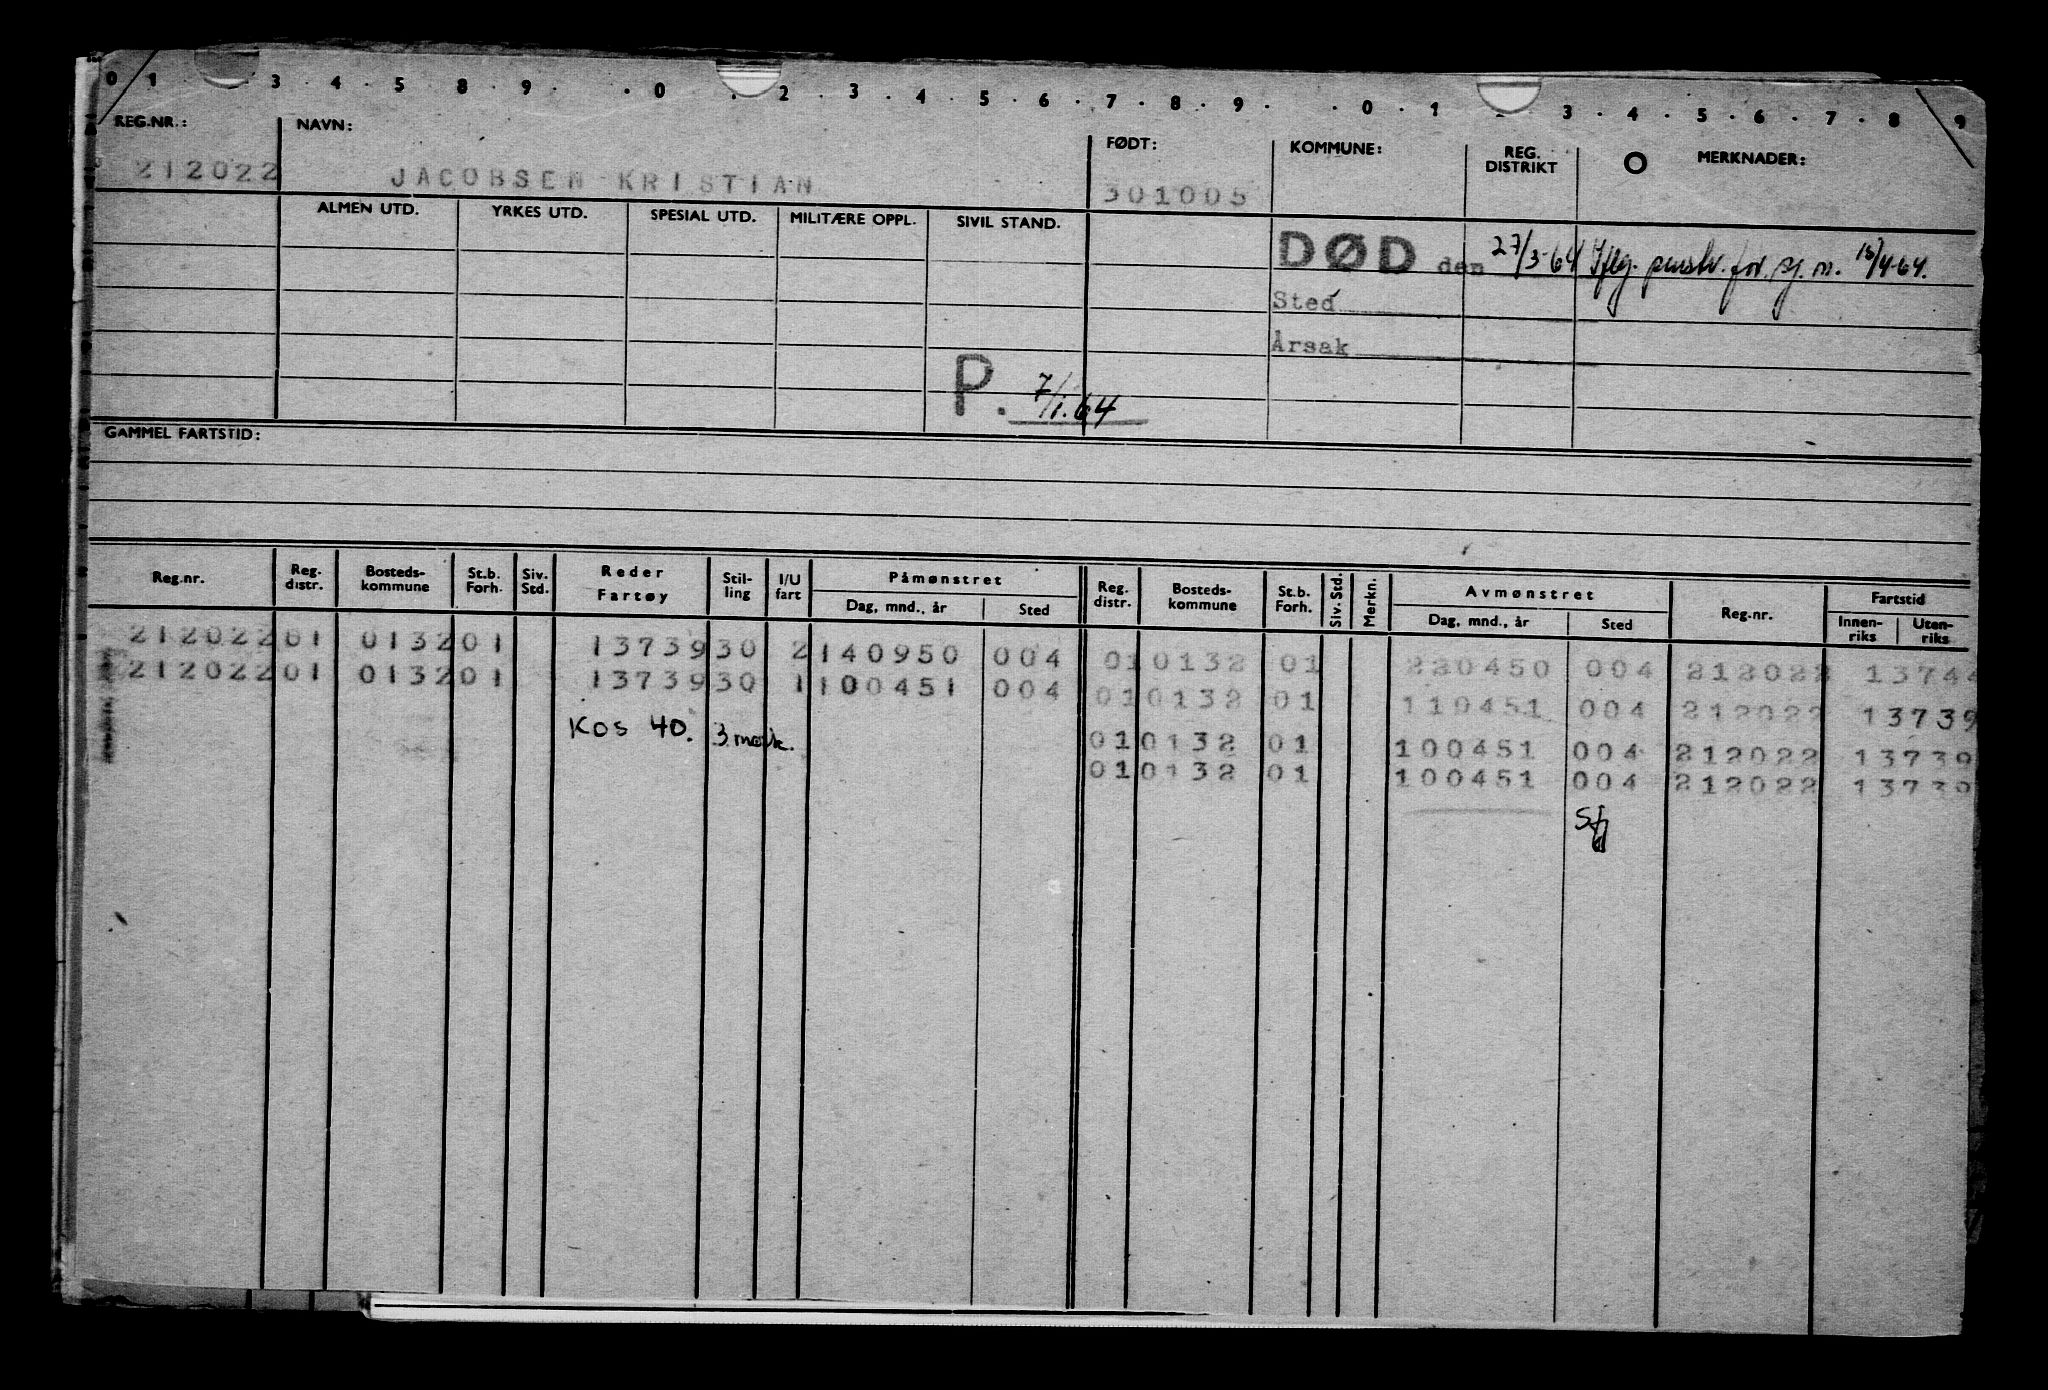 0 1 3 · 4 · 5 8 · 9 · · 0 · 2 · 3 · 4 · 5 · 6 · 7 · 8 · 9 · · 0 · 1 · 3 · 4 · 5 · 6 · 7 · 8 9
REG.NR.: NAVN: FØDT: KOMMUNE: REG. DISTRIKT O MERKNADER:
212022 JACOBSEN KRISTIAN 301005
ALMEN UTD. YRKES UTD. SPESIAL UTD. MILITÆRE OPPL. SIVIL STAND.
DØD den 27/3-64 Iflg. penstr. for sj. m. 15/4-64.
Sted
Årsak
P. 7/1.64
GAMMEL FARTSTID:
Reg.nr. Reg. distr. Bosteds-kommune St.b. Forh. Siv. Std. Reder Fartøy Stil-ling I/U fart Påmønstret Dag, mnd., år Sted Reg. distr. Bosteds-kommune St.b. Forh. Siv. Std. Merkn. Avmønstret Dag, mnd., år Sted Reg.nr. Fartstid Innen-riks Uten-riks
212022 01 0132 01 13739 30 2 140950 004 01 0132 01 220450 004 212022 13744
212022 01 0132 01 13739 30 1 100451 004 01 0132 01 110451 004 212022 13739
Kos 40. 3 mask. 01 0132 01 100451 004 212022 13739
01 0132 01 100451 004 212022 13739